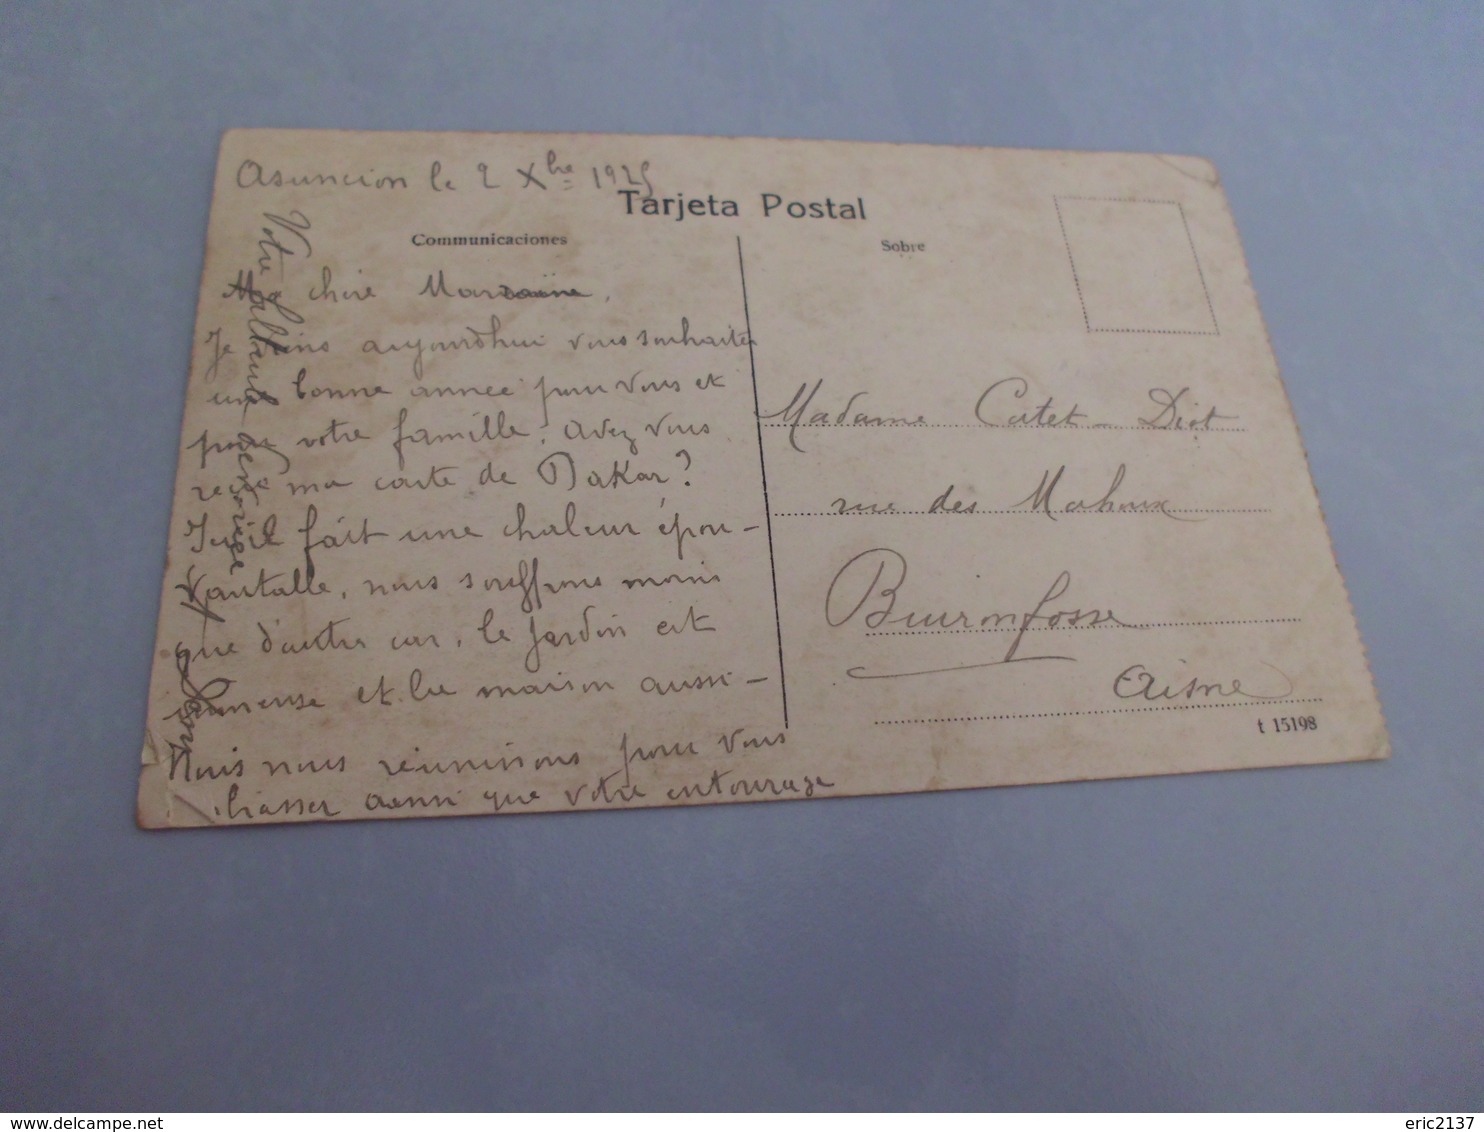 Asuncion le 2 Xbre 1925
Tarjeta Postal
Communicaciones
Sobre
Ma chère Marraine,
Je viens aujourd'hui vous souhaiter
une bonne année pour vous et
pour votre famille. avez vous
reçu ma carte de Dakar?
Ici il fait une chaleur épou-
vantable, nous souffrons moins
que d'autre car, le jardin est
immense et la maison aussi-
Nous nous réunissons pour vous
biasser ainsi que votre entourage
Votre
Madame Catet-Diot
rue des Mahoux
Buironfosse
Aisne
t 15198
eric2137